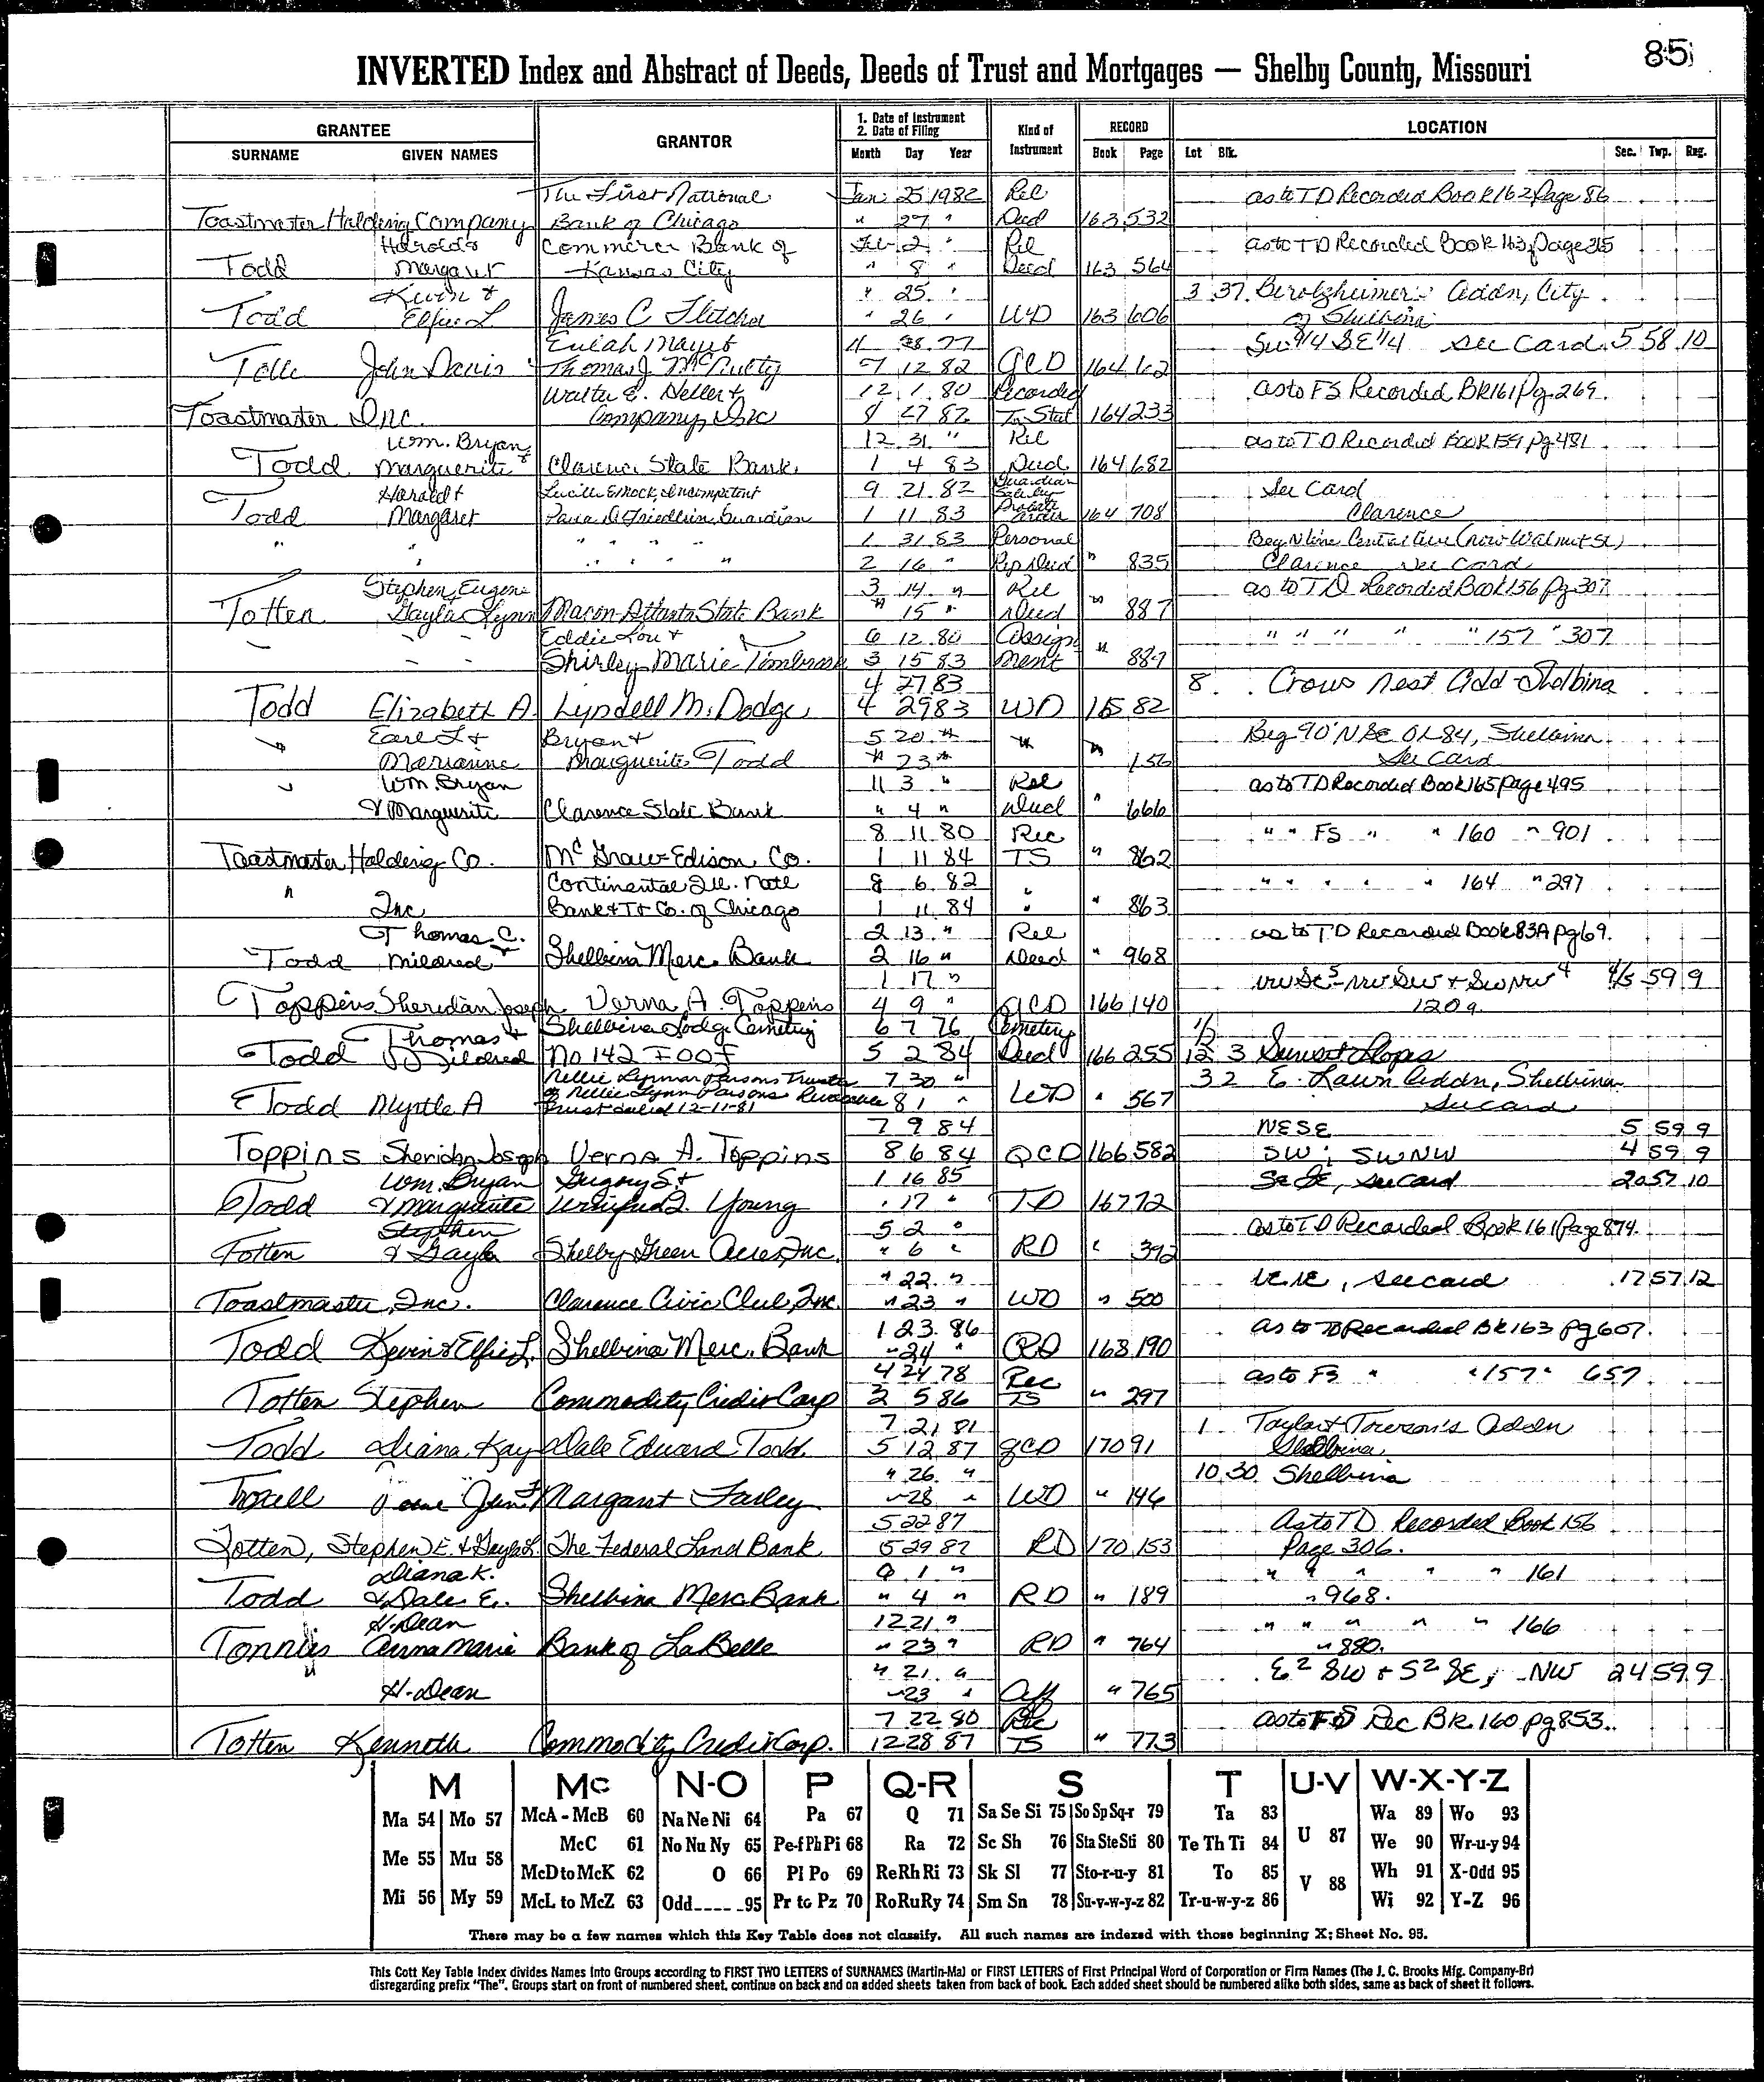 85
INVERTED Index and Abstract of Deeds, Deeds of Trust and Mortgages — Shelby County, Missouri
GRANTEE GRANTOR 1. Date of Instrument 2. Date of Filing Kind of Instrument RECORD LOCATION
SURNAME GIVEN NAMES Month Day Year Book Page Lot Blk. Sec. Twp. Rng.
The First National Jan 25 1982 Rel as to TD Recorded Book 162 Page 86
Toastmaster Holding Company Bank of Chicago " 27 " Deed 163 532
Harold & Commerce Bank of Feb 2 " Rel as to TD Recorded Book 163 page 315
Todd Margaret Kansas City " 8 " Deed 163 564
Kevin & " 25 " 3 37 Berolzheimer Addn, City
Todd Elfie L James C Fletcher " 26 " WD 163 606 of Shelbina
Eulah Mayes 11 28 77 SW 1/4 SE 1/4 See Card 5 58 10
Tolle John Davis Thomas J McNulty 7 12 82 QCD 164 162
Walter E. Heller & 12 1 80 Recorded as to FS Recorded BK 161 Pg 269
Toastmaster Inc. Company, Inc 8 27 82 Tm Stat 164 233
Wm. Bryan 12 31 " Rel as to TD Recorded Book 159 Pg 481
Todd Marguerite & Clarence State Bank 1 4 83 Deed 164 682
Harold & Lucille E Mock, Incompetent 9 21 82 Guardian Sale by See Card
Todd Margaret Guardian 1 11 83 Probate 164 708 Clarence
" " " " " " 1 31 83 Personal Beg N line Central Ave (now Walnut St)
" " " " 2 16 " Rep Deed " 835 Clarence See Card
Stephen Eugene 3 14 " Rel as to TD Recorded Book 156 Pg 307
Totten Gayla Lynn Macon-Atlanta State Bank " 15 " Deed " 887
Eddie Lou & 6 12 80 Assign " " " " " 157 " 307
Shirley Marie Timbrook 3 15 83 ment " 889
4 27 83 8 Crows Nest Add-Shelbina
Todd Elizabeth A. Lyndell M. Dodge 4 29 83 WD 165 82
Earl L & Bryan & 5 20 " " " Beg 90' N SE OL 84, Shelbina
" Marianne Marguerite Todd " 23 " 156 See Card
" Wm. Bryan 11 3 " Rel as to TD Recorded Book 165 Page 495
& Marguerite Clarence State Bank " 4 " Deed " 666
8 11 80 Rec " " FS " " 160 " 901
Toastmaster Holding Co. McGraw-Edison Co. 1 11 84 TS " 862
Continental Ill. Natl 8 6 82 " " " " " " 164 " 297
" Inc Bank & Tr Co. of Chicago 1 11 84 " " 863
Thomas C. 2 13 " Rel as to TD Recorded Book 83A pg 69.
Todd Mildred & Shelbina Merc. Bank 2 16 " Deed " 968
1 17 " NW SE 5 - NW SW & SW NW 4 4/5 59 9
Toppins Sheridan Joseph Verna A. Toppins 4 9 " QCD 166 140 120a
Thomas & Shelbina Lodge Cemetery 6 7 76 Cemetery 1/2
Todd Mildred No 142 IOOF 5 2 84 Deed 166 255 12 3 Sunset Slopes
Nellie Lynn Parsons Trustee 7 30 " 3 2 E. Lawn Addn, Shelbina
Todd Myrtle A of Nellie Lynn Parsons Revocable Trust dated 12-11-81 8 1 " WD " 567 See card
7 9 84 NE SE 5 59 9
Toppins Sheridan Joseph Verna A. Toppins 8 6 84 QCD 166 582 SW; SWNW 4 59 9
Wm. Bryan Gregory S & 1 16 85 SE SE, see card 20 57 10
Todd & Marguerite Winifred J. Young " 17 " TD 167 72
Stephen 5 2 " as to TD Recorded Book 161 Page 874
Totten & Gayla Shelby Green Acres, Inc. " 6 " RD " 392
" 22 " NE NE, see card 17 57 12
Toastmaster, Inc. Clarence Civic Club, Inc. " 23 " WD " 500
1 23 86 as to TD Recorded BK 163 pg 607.
Todd Kevin & Elfie L. Shelbina Merc. Bank " 24 " RD 168 190
4 24 78 Rec as to FS " " 157 " 657
Totten Stephen Commodity Credit Corp 3 5 86 TS " 297
7 21 81 1 Taylor & Towson's Addn
Todd Diana Kay Dale Edward Todd 5 12 87 QCD 170 91 Shelbina
" 26 " 10 30 Shelbina
Margaret Farley " 28 " WD " 146
5 22 87 As to TD Recorded Book 156
Totten, Stephen E. & Gayla L. The Federal Land Bank 5 29 87 RD 170 153 Page 306.
Diana K. 6 1 " " " " " " 161
Todd & Dale E. Shelbina Merc Bank " 4 " RD " 189 " 968.
H. Dean 12 21 " " " " " " 166
Tonnies Anna Marie Bank of LaBelle " 23 " RD " 764 " 880.
" " 21 " E2 SW & S2 SE, NW 24 59 9
H. Dean " 23 " Aff " 765
7 22 80 Rec as to FS Rec BK 160 pg 853.
Totten Kenneth Commodity Credit Corp. 12 28 87 TS " 773
M Mc N-O P Q-R S T U-V W-X-Y-Z
Ma 54 Mo 57 McA - McB 60 Na Ne Ni 64 Pa 67 Q 71 Sa Se Si 75 So Sp Sq-r 79 Ta 83 U 87 Wa 89 Wo 93
McC 61 No Nu Ny 65 Pe-f Ph Pi 68 Ra 72 Sc Sh 76 Sta Ste Sti 80 Te Th Ti 84 We 90 Wr-u-y 94
Me 55 Mu 58 McD to McK 62 O 66 Pl Po 69 Re Rh Ri 73 Sk Sl 77 Sto-r-u-y 81 To 85 V 88 Wh 91 X-Odd 95
Mi 56 My 59 McL to McZ 63 Odd 95 Pr to Pz 70 Ro Ru Ry 74 Sm Sn 78 Su-v-w-y-z 82 Tr-u-w-y-z 86 Wi 92 Y-Z 96
There may be a few names which this Key Table does not classify. All such names are indexed with those beginning X; Sheet No. 95.
This Cott Key Table Index divides Names Into Groups according to FIRST TWO LETTERS of SURNAMES (Martin-Ma) or FIRST LETTERS of First Principal Word of Corporation or Firm Names (The J. C. Brooks Mfg. Company-Br)
disregarding prefix "The". Groups start on front of numbered sheet, continue on back and on added sheets taken from back of book. Each added sheet should be numbered alike both sides, same as back of sheet it follows.